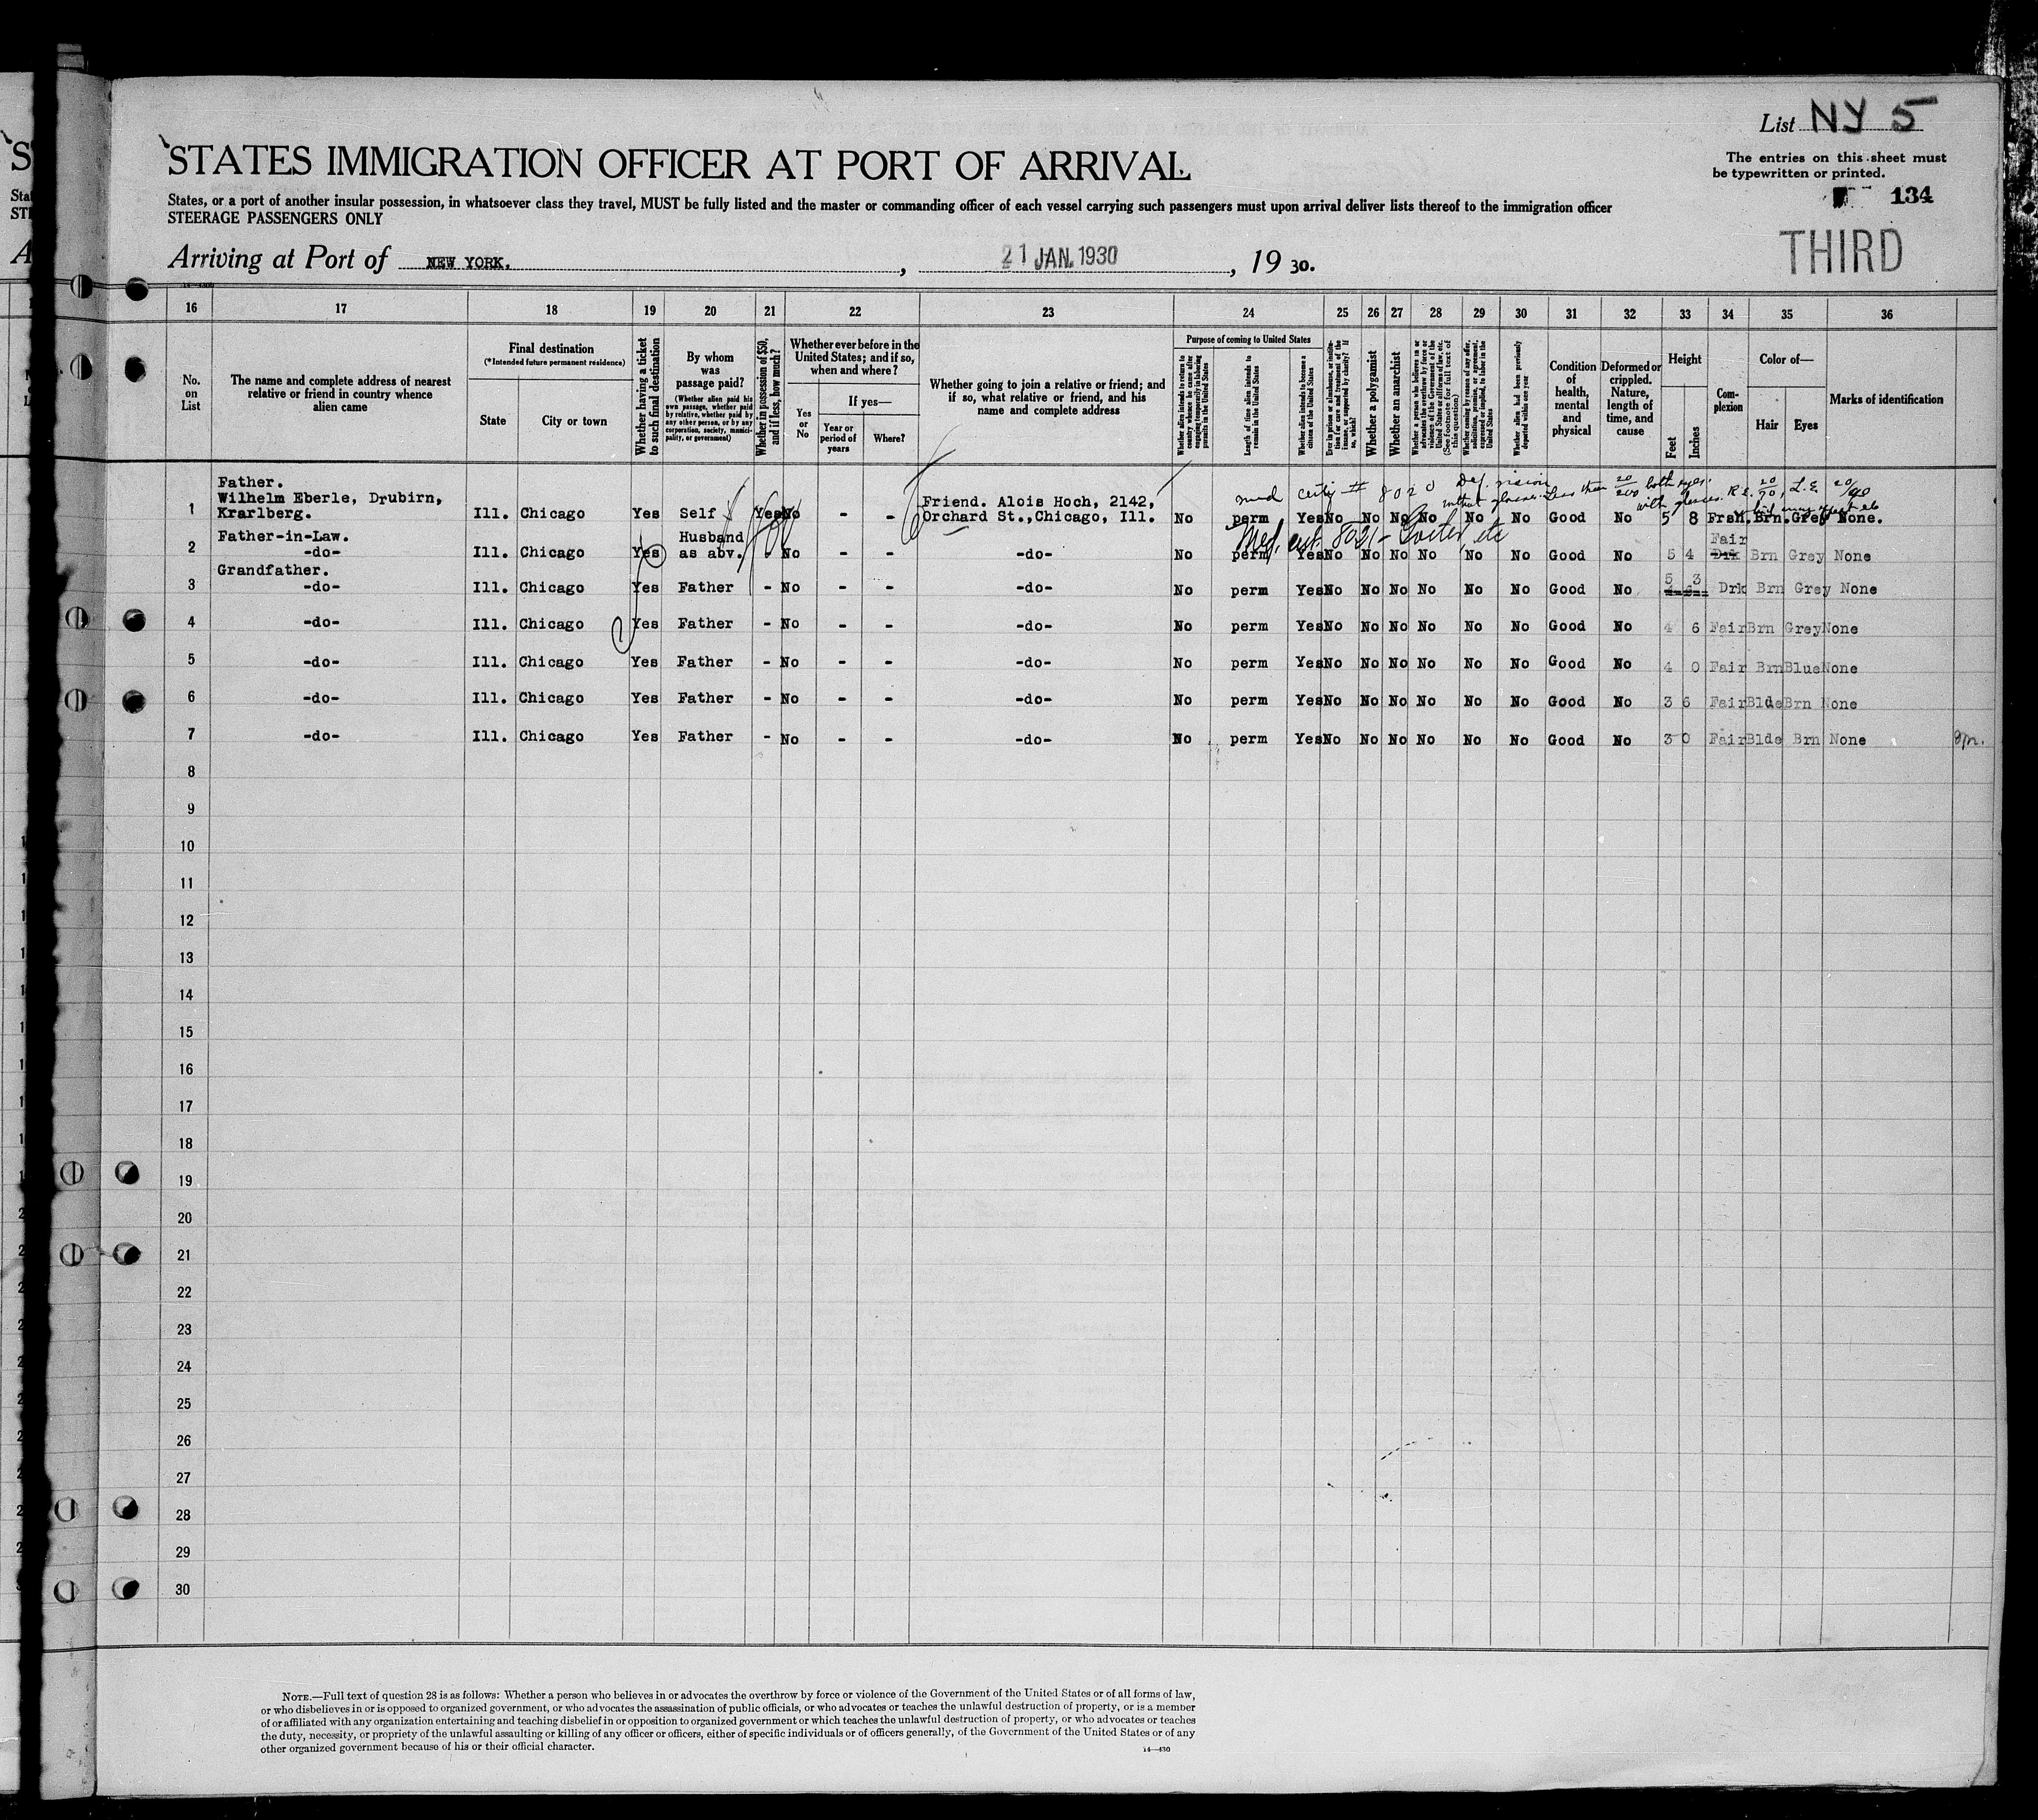 List NY 5
STATES IMMIGRATION OFFICER AT PORT OF ARRIVAL
The entries on this sheet must
be typewritten or printed.
134
States, or a port of another insular possession, in whatsoever class they travel, MUST be fully listed and the master or commanding officer of each vessel carrying such passengers must upon arrival deliver lists thereof to the immigration officer
STEERAGE PASSENGERS ONLY
THIRD
Arriving at Port of NEW YORK. , 21 JAN. 1930 , 19 30.
16 17 18 19 20 21 22 23 24 25 26 27 28 29 30 31 32 33 34 35 36
No. on List
The name and complete address of nearest relative or friend in country whence alien came
Final destination
(*Intended future permanent residence)
State
City or town
Whether having a ticket to such final destination
By whom was passage paid?
(Whether alien paid his own passage, whether paid by relative, whether paid by any other person, or by any corporation, society, municipality, or government)
Whether in possession of $50, and if less, how much?
Whether ever before in the United States; and if so, when and where?
Yes or No
If yes—
Year or period of years
Where?
Whether going to join a relative or friend; and if so, what relative or friend, and his name and complete address
Purpose of coming to United States
Length of time alien intends to remain in the United States
Whether alien intends to become a citizen of the United States
Whether a polygamist
Whether an anarchist
Whether alien had been previously deported within one year
Condition of health, mental and physical
Deformed or crippled. Nature, length of time, and cause
Height
Feet
Inches
Complexion
Color of—
Hair
Eyes
Marks of identification
med certif # 8020 Def. vision
without glasses less than 20/200 both eyes.
with glasses. R.E. 20/70, L.E. 20/40
1 Father. Wilhelm Eberle, Drubirn, Krarlberg. Ill. Chicago Yes Self Yes No - - Friend. Alois Hoch, 2142, Orchard St.,Chicago, Ill. No perm Yes No No No No No No Good No 5 8 Frsh. Brn. Grey None.
Med. cert. 8021 - Goiter, etc
2 Father-in-Law. -do- Ill. Chicago Yes Husband as abv. No - - -do- No perm Yes No No No No No No Good No 5 4 Drk Fair Brn Grey None
3 Grandfather. -do- Ill. Chicago Yes Father - No - - -do- No perm Yes No No No No No No Good No 5 3 Drk Brn Grey None
4 -do- Ill. Chicago Yes Father - No - - -do- No perm Yes No No No No No No Good No 4 6 Fair Brn Grey None
5 -do- Ill. Chicago Yes Father - No - - -do- No perm Yes No No No No No No Good No 4 0 Fair Brn Blue None
6 -do- Ill. Chicago Yes Father - No - - -do- No perm Yes No No No No No No Good No 3 6 Fair Blde Brn None
7 -do- Ill. Chicago Yes Father - No - - -do- No perm Yes No No No No No No Good No 3 0 Fair Blde Brn None
8
9
10
11
12
13
14
15
16
17
18
19
20
21
22
23
24
25
26
27
28
29
30
NOTE.—Full text of question 28 is as follows: Whether a person who believes in or advocates the overthrow by force or violence of the Government of the United States or of all forms of law,
or who disbelieves in or is opposed to organized government, or who advocates the assassination of public officials, or who advocates or teaches the unlawful destruction of property, or is a member
of or affiliated with any organization entertaining and teaching disbelief in or opposition to organized government or which teaches the unlawful destruction of property, or who advocates or teaches
the duty, necessity, or propriety of the unlawful assaulting or killing of any officer or officers, either of specific individuals or of officers generally, of the Government of the United States or of any
other organized government because of his or their official character.
14—430